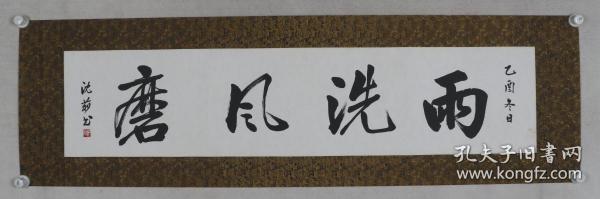 乙酉冬日
雨洗风磨
沈鹏书
孔夫子旧書网
www.kongfz.com